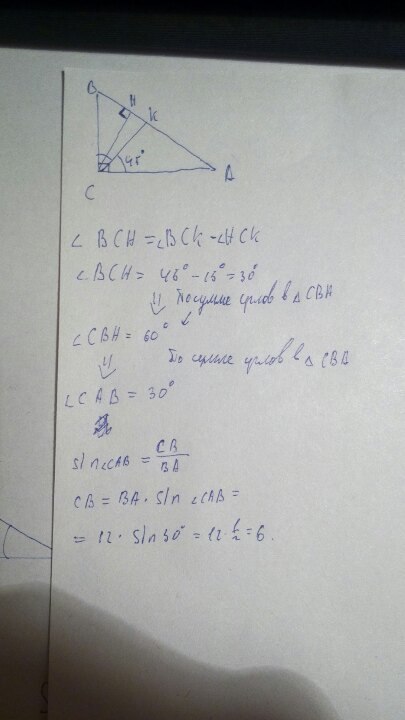 B
H
K
45°
A
C
∠ BCH = ∠BCK - ∠HCK
∠BCH = 45° - 15° = 30°
⇓ По сумме углов в △CBH
∠CBH = 60°
⇓ По сумме углов в △CBA
∠CAB = 30°
sin∠CAB = CB/BA
CB = BA · sin ∠CAB =
= 12 · sin30° = 12 · 1/2 = 6.